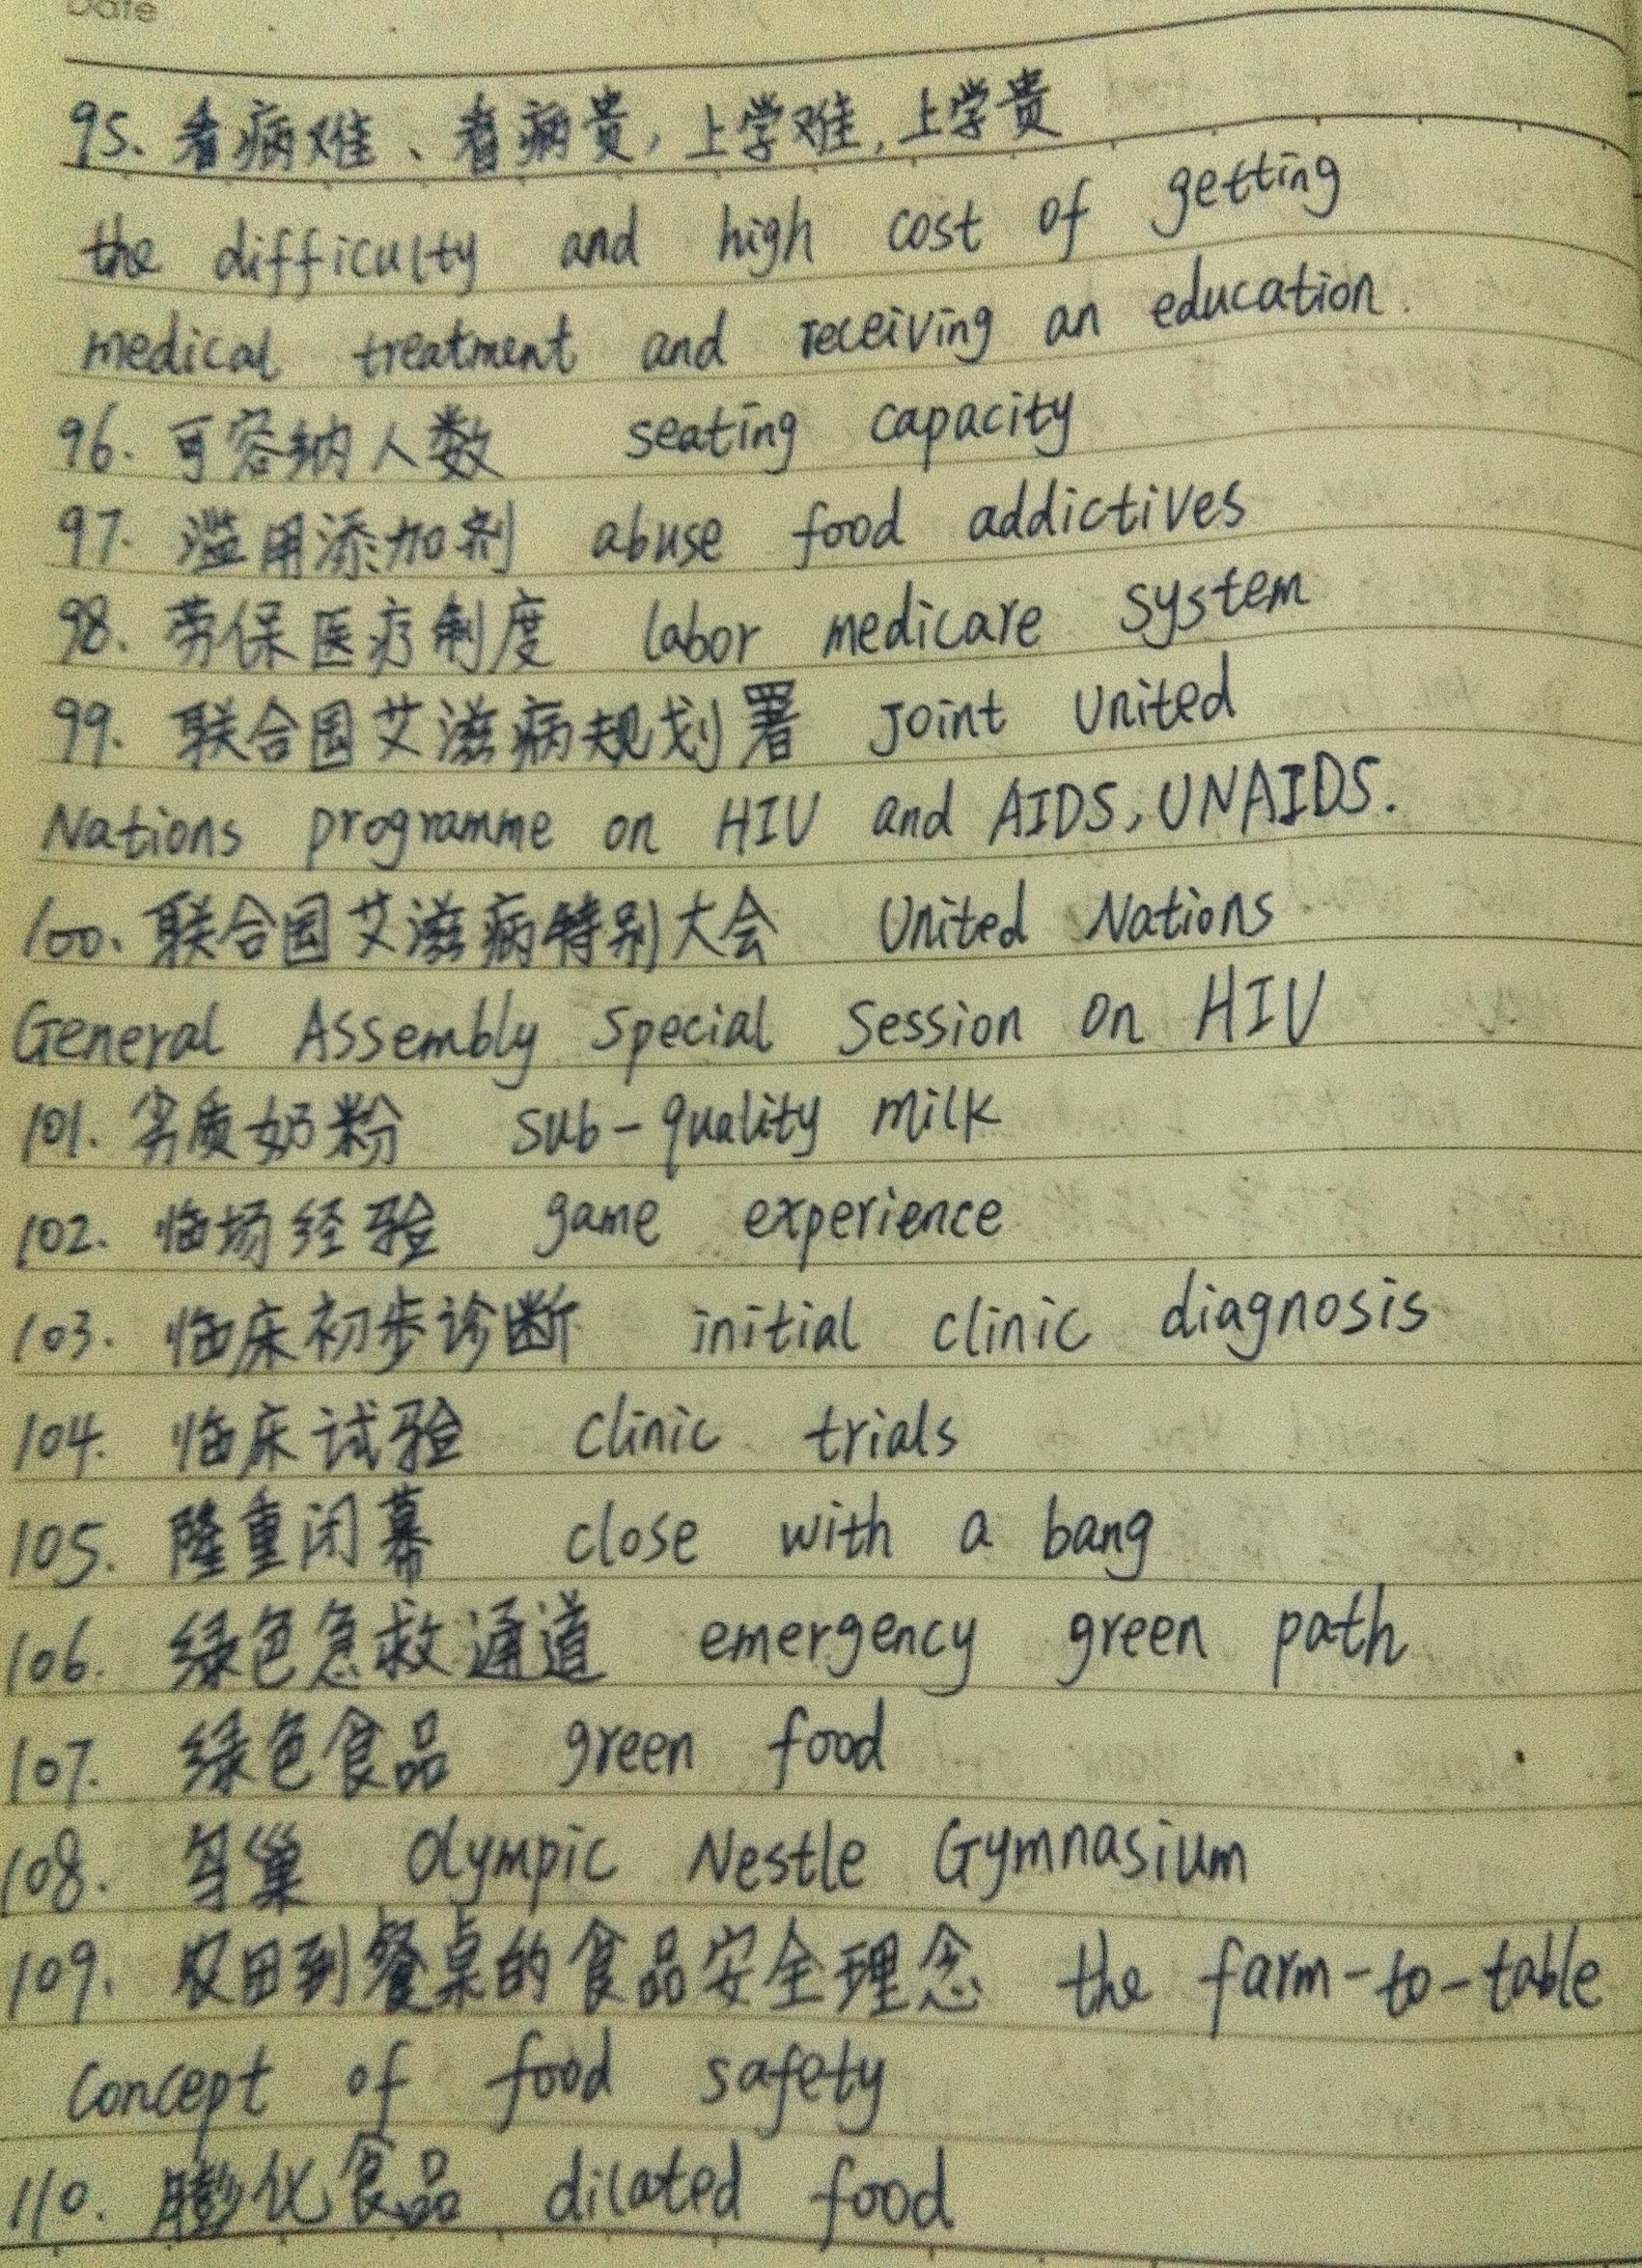 Date
95. 看病难、看病贵,上学难,上学贵
the difficulty and high cost of getting
medical treatment and receiving an education.
96. 可容纳人数 seating capacity
97. 滥用添加剂 abuse food addictives
98. 劳保医疗制度 labor medicare system
99. 联合国艾滋病规划署 Joint United
Nations programme on HIV and AIDS, UNAIDS.
100. 联合国艾滋病特别大会 United Nations
General Assembly Special Session on HIV
101. 劣质奶粉 sub-quality milk
102. 临场经验 game experience
103. 临床初步诊断 initial clinic diagnosis
104. 临床试验 clinic trials
105. 隆重闭幕 close with a bang
106. 绿色急救通道 emergency green path
107. 绿色食品 green food
108. 鸟巢 Olympic Nestle Gymnasium
109. 农田到餐桌的食品安全理念 the farm-to-table
concept of food safety
110. 膨化食品 dilated food